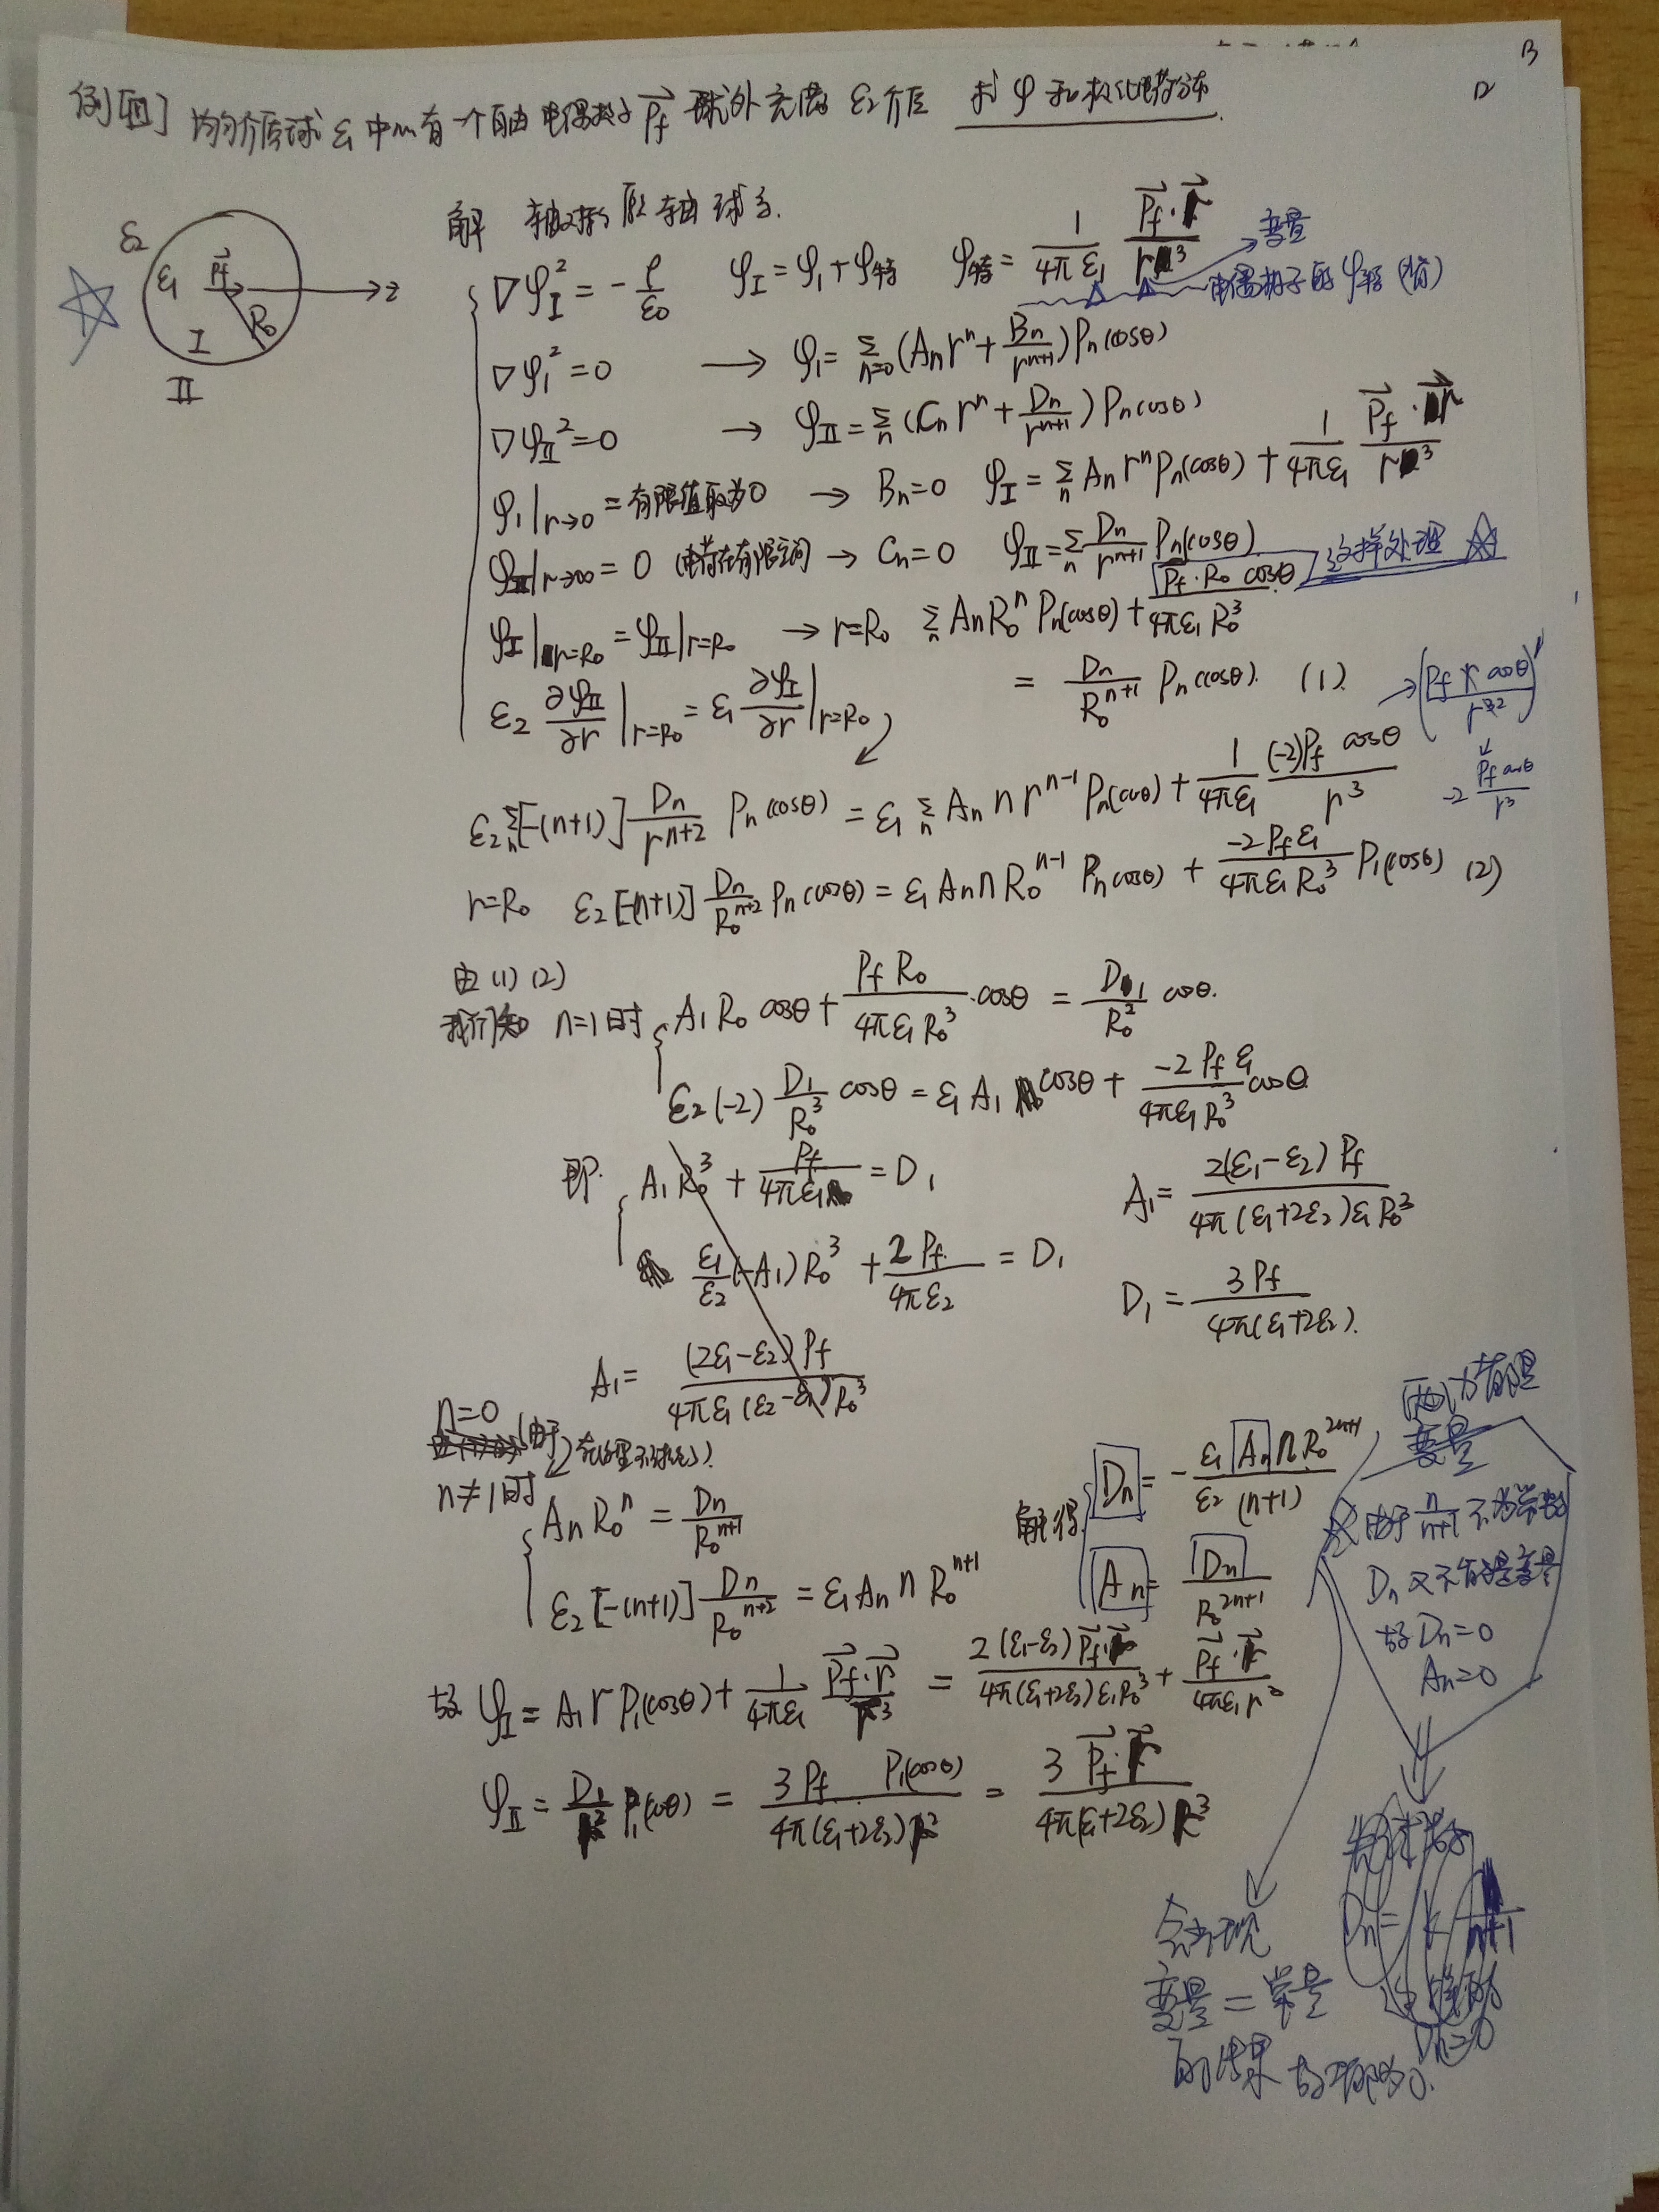 B
D
例[Ⅲ] 均匀介质球 ε₁ 中心有一个自由电偶极子 P⃗f 球外充满 ε₂介质 求 φ 和极化电荷分布.
ε₂
ε₁ P⃗f
R₀ z
I
II
解 轴对称 取z轴 球系.
▽φ_I² = -ρ/ε₀ φ_I = φ₁ + φ特 φ特 = 1/(4πε₁) (P⃗f·r⃗)/r³ 变量
电偶极子的 φ特 (解)
▽φ₁² = 0 → φ₁ = Σ_{n=0} (Aₙrⁿ + Bₙ/rⁿ⁺¹) Pₙ(cosθ)
▽φ_II² = 0 → φ_II = Σₙ (Cₙrⁿ + Dₙ/rⁿ⁺¹) Pₙ(cosθ)
φ₁|r→0 = 有限值取为0 → Bₙ=0 φ_I = Σₙ Aₙ rⁿ Pₙ(cosθ) + 1/(4πε₁) (P⃗f·r⃗)/r³
φ_II|r→∞ = 0 (电荷在有限空间) → Cₙ=0 φ_II = Σₙ Dₙ/rⁿ⁺¹ Pₙ(cosθ) 这样处理
φ_I|r=R₀ = φ_II|r=R₀ → r=R₀ Σₙ AₙR₀ⁿ Pₙ(cosθ) + (Pf·R₀ cosθ)/(4πε₁R₀³)
= Dₙ/R₀ⁿ⁺¹ Pₙ(cosθ). (1).
ε₂ ∂φ_II/∂r|r=R₀ = ε₁ ∂φ_I/∂r|r=R₀
→ (Pf r cosθ / r³)'
-2 Pf cosθ/r³
ε₂ Σₙ[-(n+1)] Dₙ/rⁿ⁺² Pₙ(cosθ) = ε₁ Σₙ Aₙ n rⁿ⁻¹ Pₙ(cosθ) + 1/(4πε₁) (-2)Pf cosθ/r³
r=R₀ ε₂[-(n+1)] Dₙ/R₀ⁿ⁺² Pₙ(cosθ) = ε₁ Aₙ n R₀ⁿ⁻¹ Pₙ(cosθ) + -2Pfε₁/(4πε₁R₀³) P₁(cosθ) (2)
由 (1) (2)
我们知 n=1时 A₁R₀ cosθ + PfR₀/(4πε₁R₀³)·cosθ = D₁/R₀² cosθ.
ε₂(-2) D₁/R₀³ cosθ = ε₁A₁ cosθ + -2Pfε₁/(4πε₁R₀³) cosθ
即. A₁R₀³ + Pf/(4πε₁) = D₁ A₁ = 2(ε₁-ε₂)Pf/(4π(ε₁+2ε₂)ε₁R₀³)
ε₁/ε₂ (-A₁)R₀³ + 2Pf/(4πε₂) = D₁ D₁ = 3Pf/(4π(ε₁+2ε₂)).
A₁ = (2ε₁-ε₂)Pf/(4πε₁(ε₂-ε₁)R₀³)
n=0
(由于
n≠1时
AₙR₀ⁿ = Dₙ/R₀ⁿ⁺¹
ε₂[-(n+1)] Dₙ/R₀ⁿ⁺² = ε₁ Aₙ n R₀ⁿ⁺¹
解得 Dₙ = - ε₁ Aₙ n R₀²ⁿ⁺¹/(ε₂(n+1))
Aₙ = Dₙ/R₀²ⁿ⁺¹
变量
又由于 n/(n+1) 不为常数
Dₙ 又不能是变量
故 Dₙ=0
Aₙ=0
故 φ_I = A₁ r P₁(cosθ) + 1/(4πε₁) (P⃗f·r⃗)/r³ = 2(ε₁-ε₂)P⃗f·r⃗/(4π(ε₁+2ε₂)ε₁R₀³) + P⃗f·r⃗/(4πε₁r³)
φ_II = D₁/r² P₁(cosθ) = 3Pf P₁(cosθ)/(4π(ε₁+2ε₂)r²) = 3P⃗f·r⃗/(4π(ε₁+2ε₂)r³)
会出现
变量 = 常量
的结果 故都为0.
Dₙ=
n+1
Dₙ=0